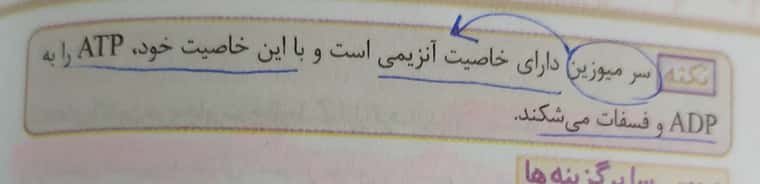 نکته سر میوزین دارای خاصیت آنزیمی است و با این خاصیت خود، ATP را به
ADP و فسفات می‌شکند.
بررسی سایر گزینه‌ها